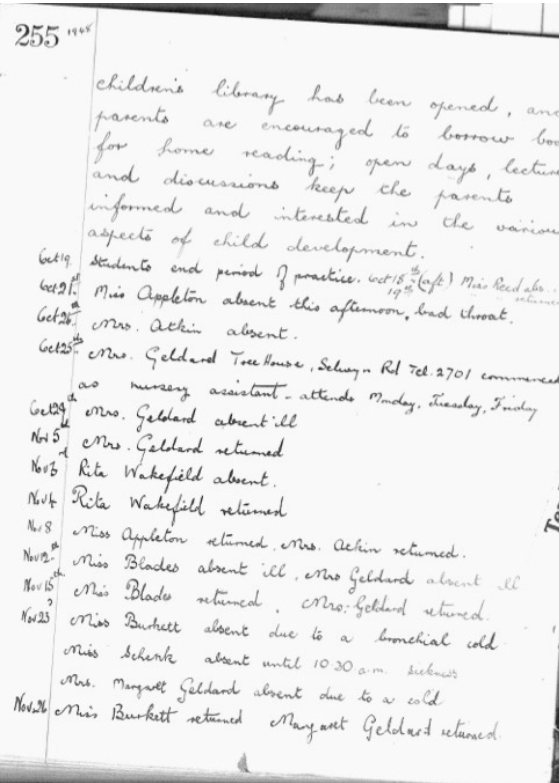 255 1948
children's library has been opened, and
parents are encouraged to borrow boo
for home reading; open days, lectur
and discussions keep the parents
informed and interested in the variou
aspects of child development.
Oct 19 Students end period of practice. Oct 18th (aft) Miss Reed abs.
19th returne
Oct 21st Miss Appleton absent this afternoon, bad throat.
Mrs. Atkin absent.
Oct 25th Mrs. Geldard Tree House, Selwyn Rd Tel. 2701 commenced
as nursery assistant - attends Monday, Tuesday, Friday
Oct 29th Mrs. Geldard absent ill
Nov 5 Mrs. Geldard returned
Rita Wakefield absent.
Nov 4 Rita Wakefield returned
Nov 8 Miss Appleton returned, Mrs. Atkin returned.
Nov 12th Miss Blades absent ill, Mrs Geldard absent ill
Nov 15th Miss Blades returned, Mrs. Geldard returned.
Nov 23 Miss Burkett absent due to a bronchial cold
Miss Schenk absent until 10 30 a.m. sickness
Mrs. Margaret Geldard absent due to a cold
Nov. 26 Miss Burkett returned Margaret Geldard returned.